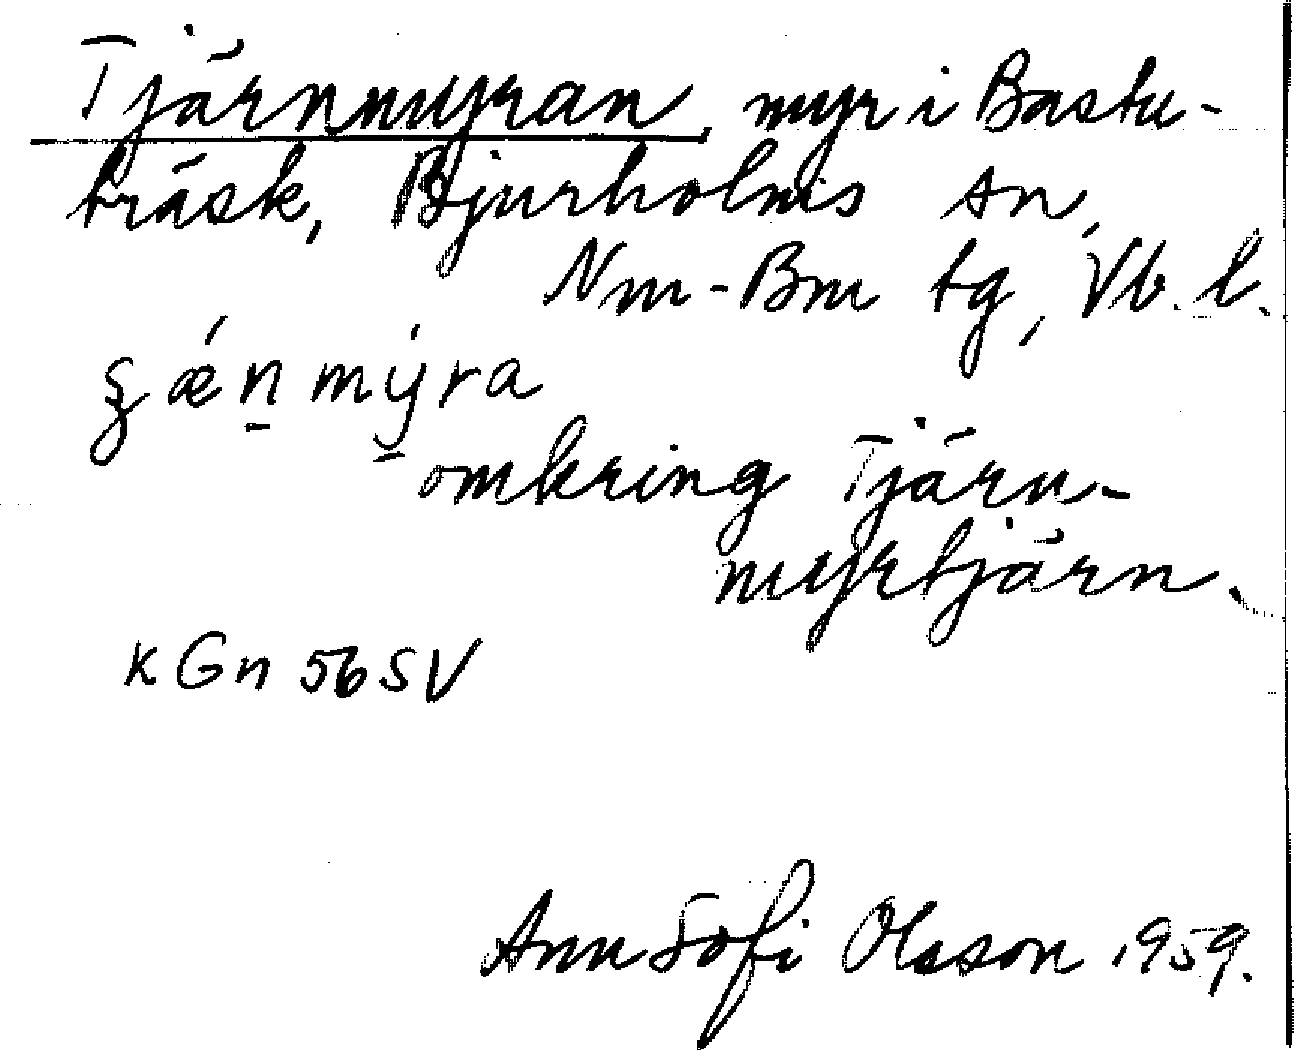 Tjärnmyran, myr i Bastu-
träsk, Bjurholms sn,
Nm-Bm tg, Vb. l.
omkring Tjärn-
myrtjärn.
K Gn 56 SV
Ann Sofi Olsson 1959.